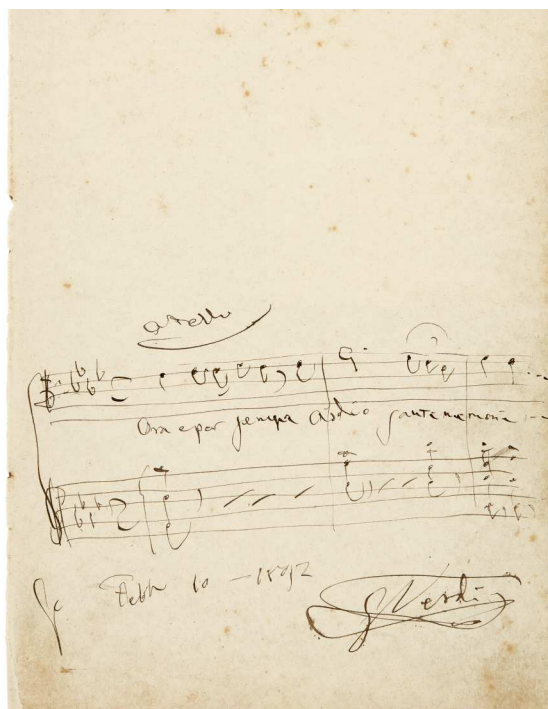 Otello
Ora e per sempre addio sante memorie
Ge Febb 10 - 1892
GVerdi